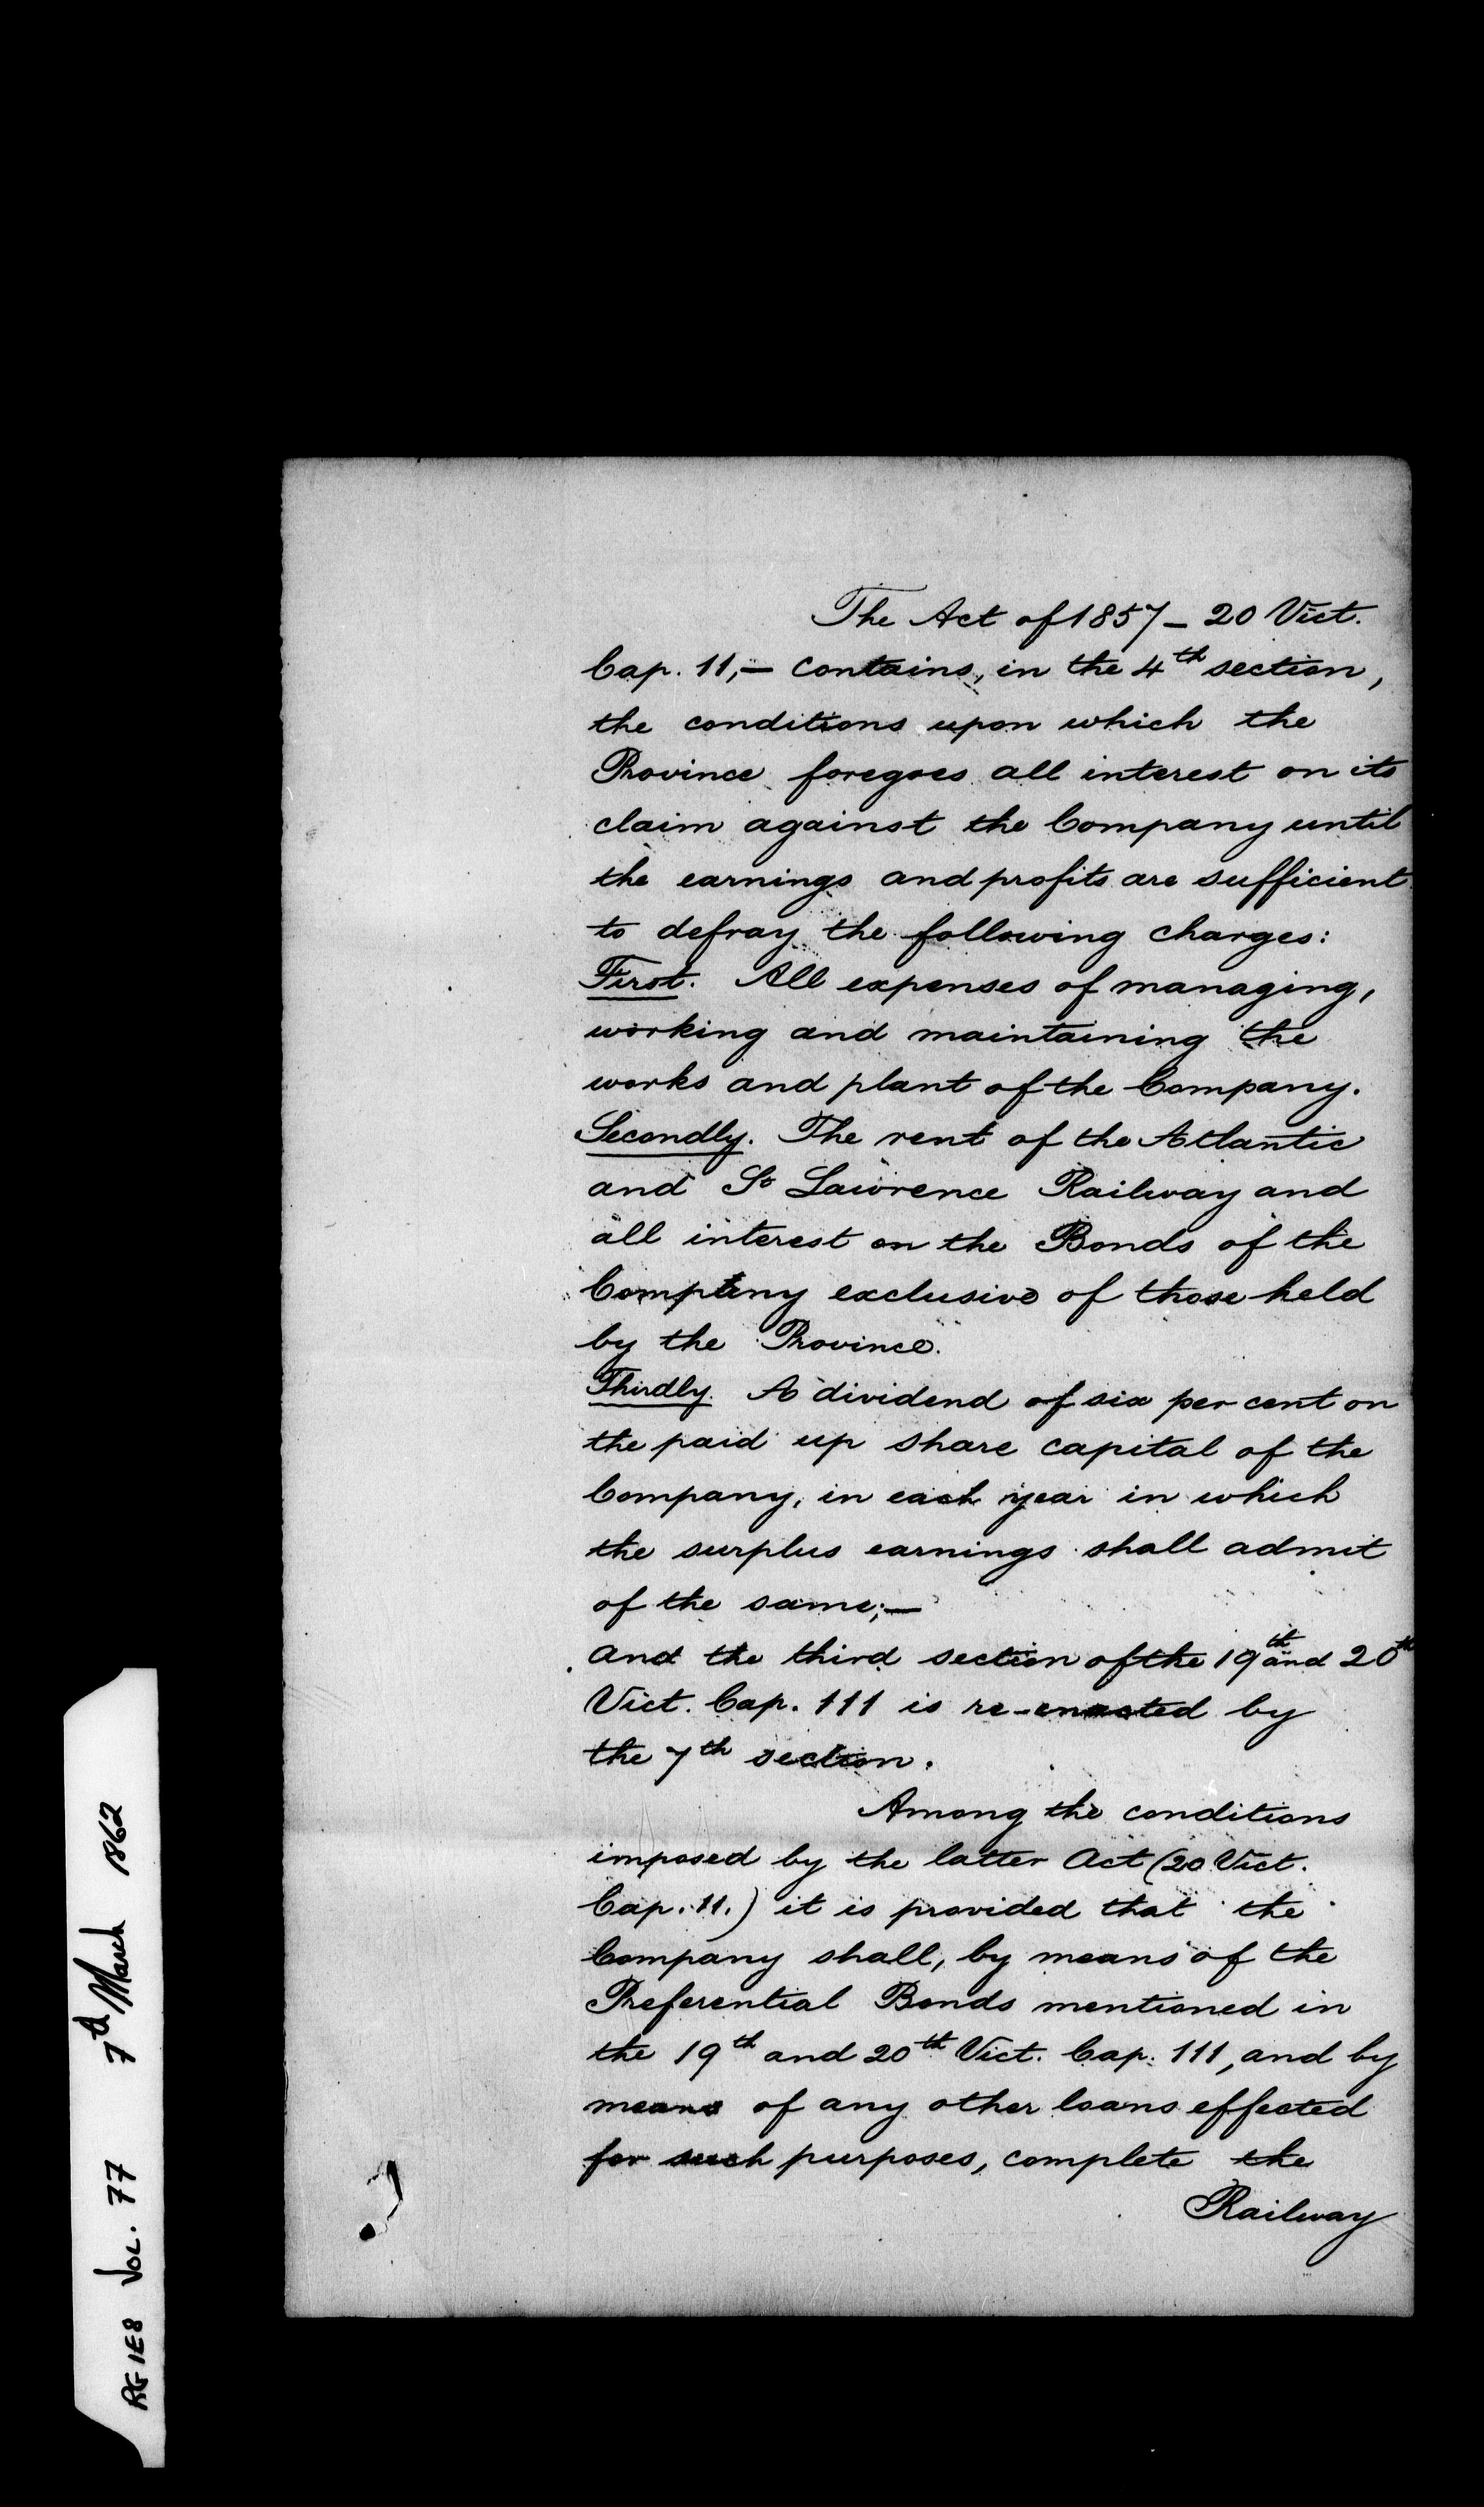 The Act of 1857 _ 20 Vict.
Cap. 11,— contains, in the 4th section,
the conditions upon which the
Province foregoes all interest on its
claim against the Company until
the earnings and profits are sufficient
to defray the following charges:
First. All expenses of managing,
working and maintaining the
works and plant of the Company.
Secondly. The rent of the Atlantic
and St Lawrence Railway and
all interest on the Bonds of the
Company exclusive of those held
by the Province.
Thirdly. A dividend of six per cent on
the paid up share capital of the
Company, in each year in which
the surplus earnings shall admit
of the same;—
and the third section of the 19th and 20th
Vict. Cap. 111 is re-enacted by
the 7th section.
Among the conditions
imposed by the latter Act (20 Vict.
Cap. 11.) it is provided that the
Company shall, by means of the
Preferential Bonds mentioned in
the 19th and 20th Vict. Cap. 111, and by
means of any other loans effected
for such purposes, complete the
Railway
RG 1E8 VOL. 77 7th March 1862